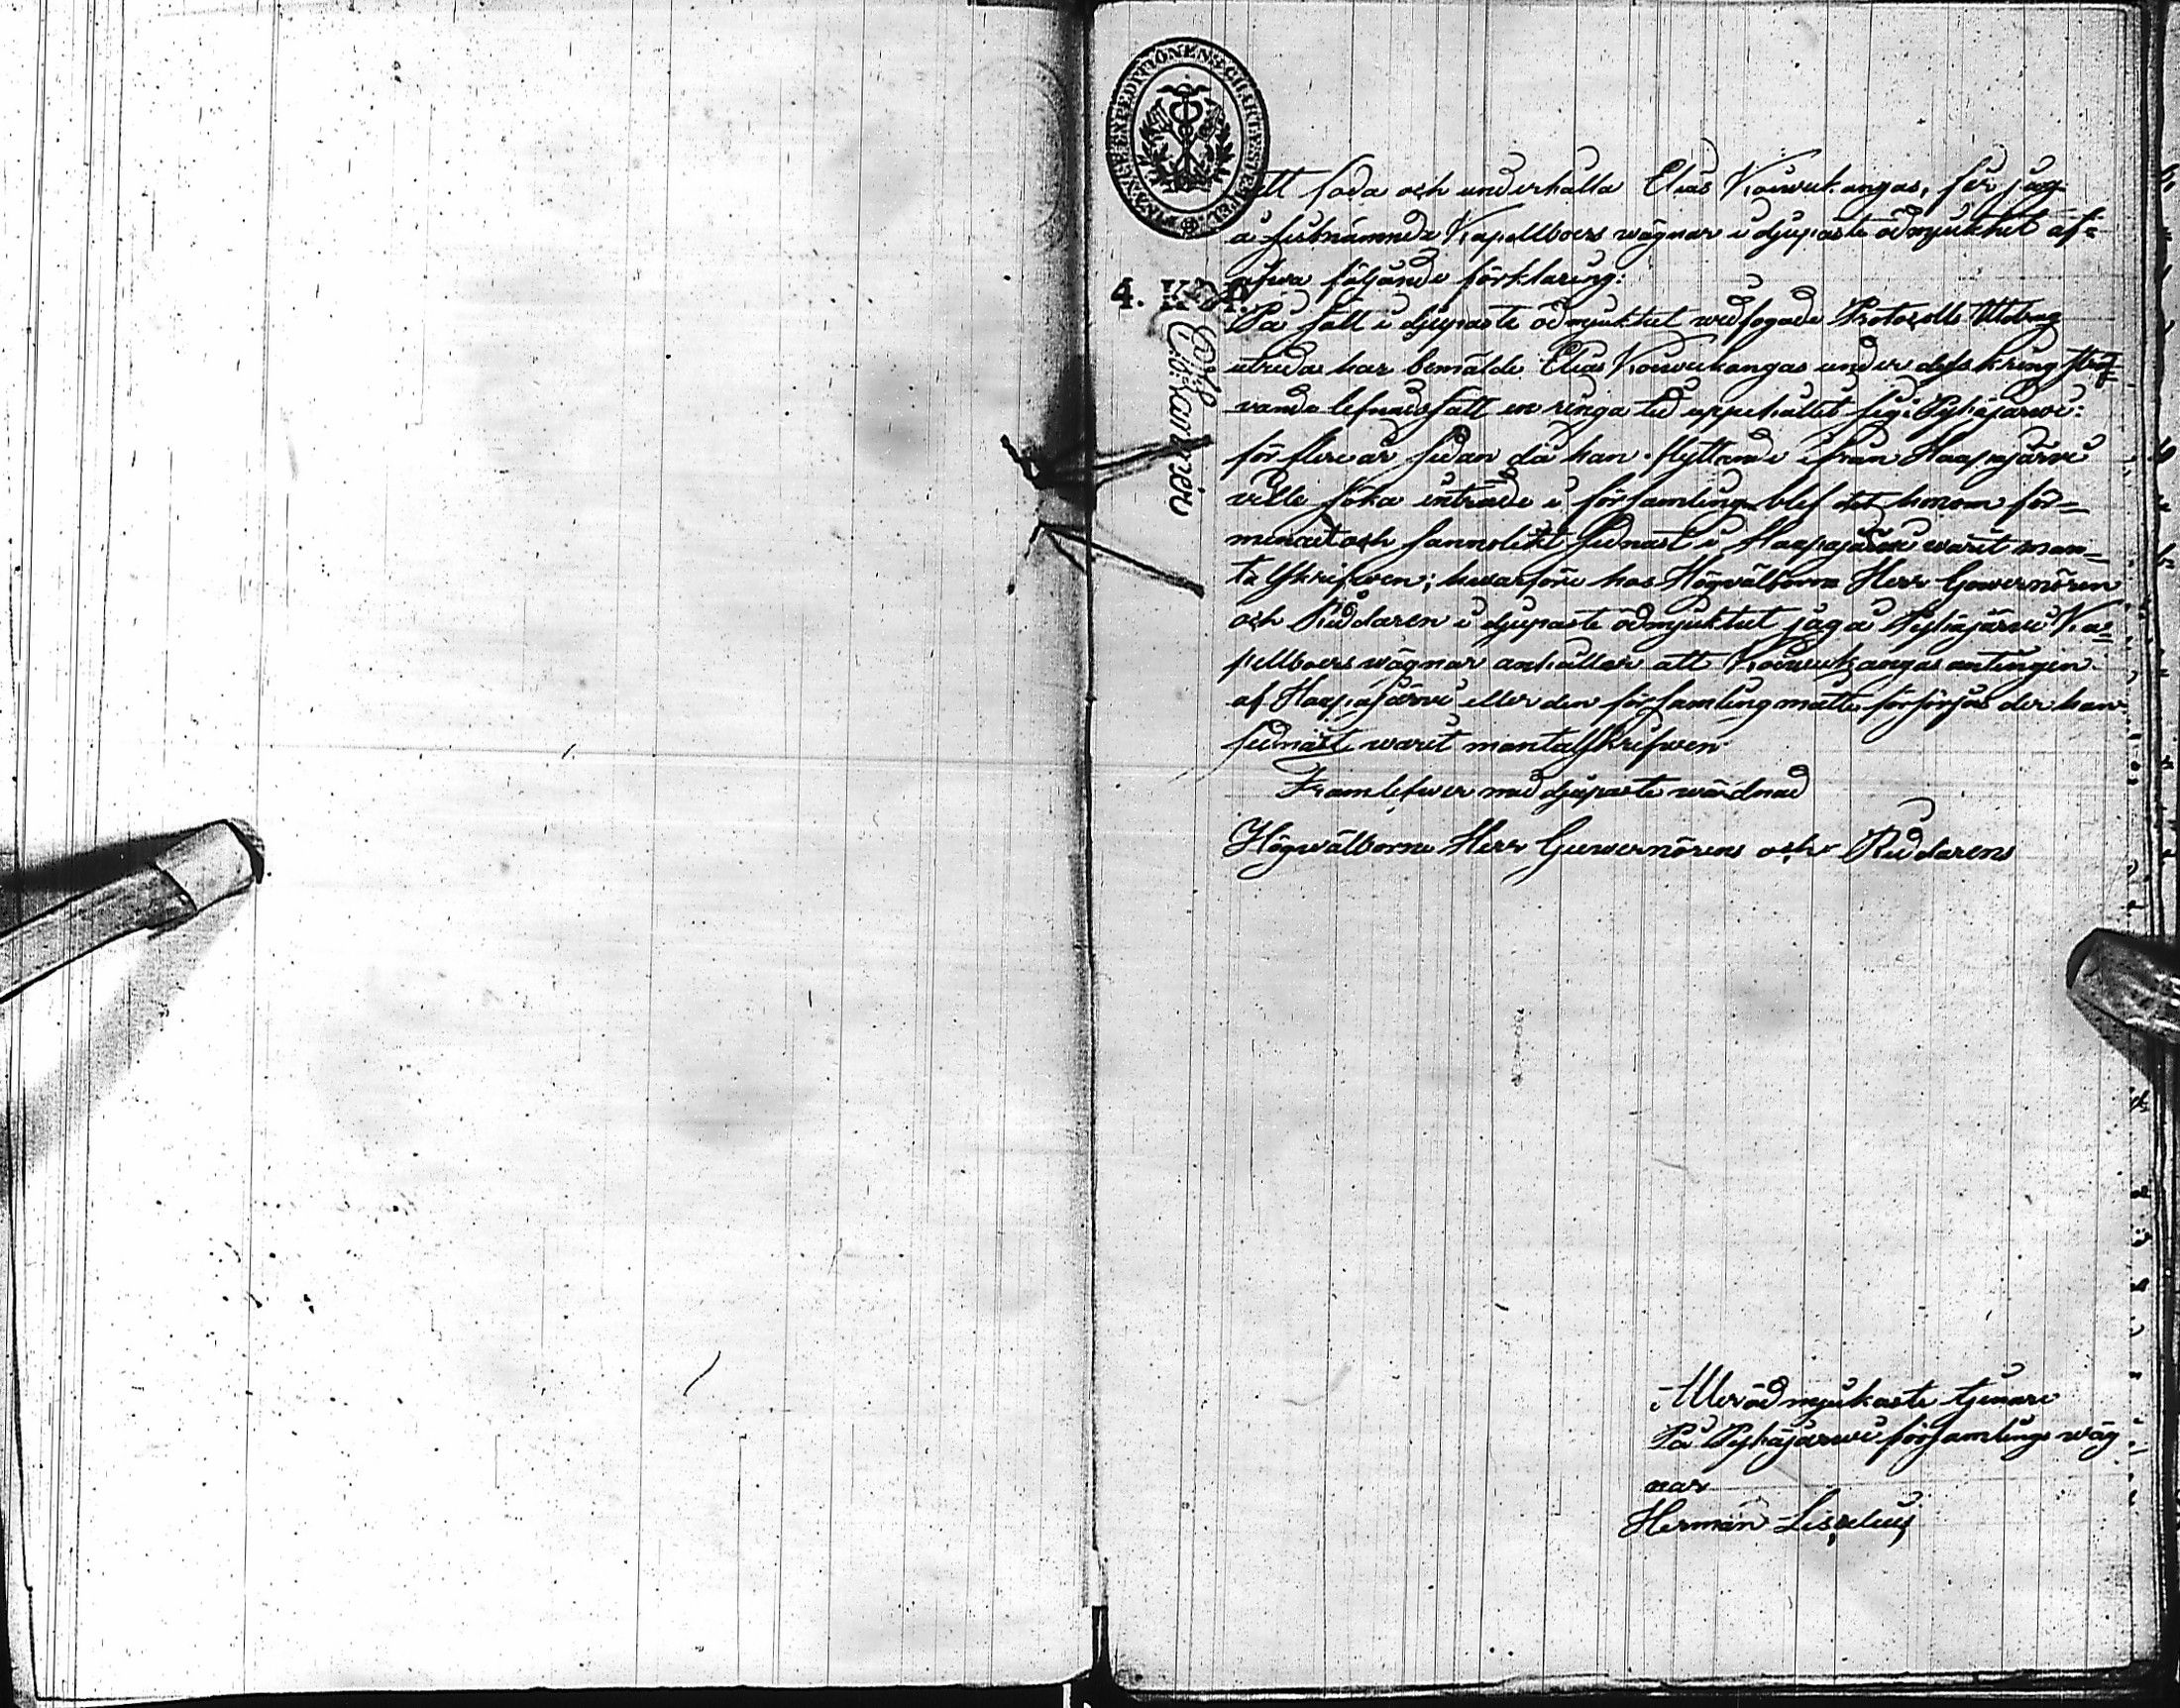 FINANCE EXPEDITIONENS CHARTÆ STEMPEL
4. KOP.
att föda och underhålla Elias Koiwukangas, får jag
å sistnämnda Kapellboers wägnar i djupaste ödmjukhet af=
gifwa följande förklaring:
På sätt i djupaste ödmjukhet widfogade Protocolls Utdrag
utreda har bemälde Elias Koiwukangas under dess kring stry=
vande lefnadssätt en ringa tid uppehållit sig i Pyhäjärwi:
för flere år sedan då han flyttande ifrån Haapajärwi
ville söka inträde i församlingen blef det honom för=
menat och sannolikt sednast i Haapajärwi warit man=
talsskrifwen; hwarföre hos Högvälborne Herr Gouvernören
och Riddaren i djupaste ödmjukhet jag å Pyhäjärwi Ka=
pellboers wägnar anhåller att Koiwukangas antingen
af Haapajärwi eller den församling måtte försörjas der han
sednast warit mantalsskrifwen.
Framlefwer med djupaste wördnad
Högwälborne Herr Gouvernörens och Riddarens
Allerödmjukaste tjenare
På Pyhäjärwi församlings wäg=
nar
Herman